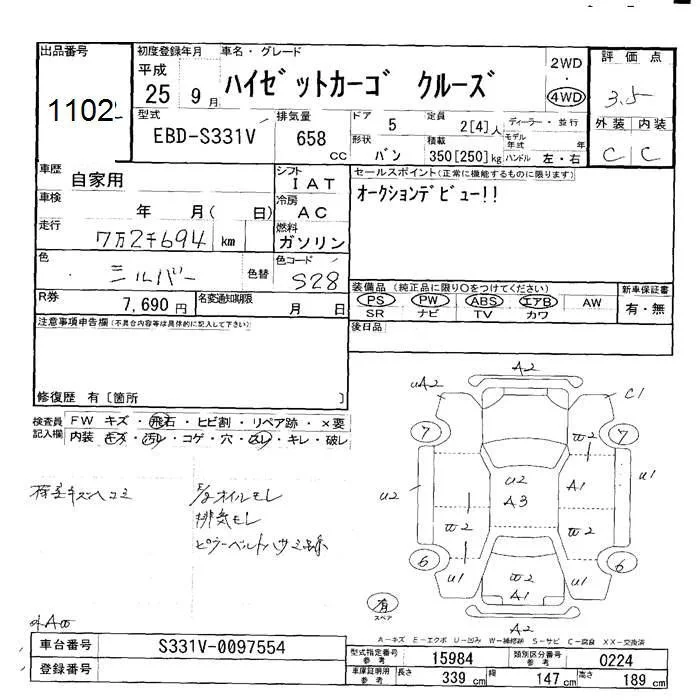 出品番号
1102
初度登録年月
平成
25 9月
車名・グレード
ハイゼットカーゴ クルーズ
2WD
・
4WD
評価点
3.5
外装 内装
C C
型式
EBD-S331V
排気量
658
cc
ドア
5
定員
2[4]人
ディーラー・並行
形状
バン
積載
350[250]kg
モデル年式 年
ハンドル 左・右
車歴
自家用
シフト
IAT
車検
年 月( 日)
冷房
AC
走行
7万2千694 km
燃料
ガソリン
色
シルバー
色替
色コード
S28
R券
7,690円
名変通知期限
月 日
セールスポイント(正常に機能するものに限ります)
オークションデビュー!!
装備品(純正品に限り○をつけてください)
PS PW ABS エアB AW
SR ナビ TV カワ
新車保証書
有・無
後日品
注意事項申告欄(不具合内容等は具体的に記入して下さい)
修復歴 有〔箇所 〕
検査員記入欄
FW キズ・飛石・ヒビ割・リペア跡・×要
内装 キズ・汚レ・コゲ・穴・スレ・キレ・破レ
荷室キズヘコミ
オイルモレ
排気モレ
ピラーベルトハサミ跡
A2
uA2
C1
7
7
u2
A1
u1
u2
A3
6
6
u1
u1
A1
A2
有
スペア
外A
A-キズ E-エクボ U-凹み W-補修跡 S-サビ C-腐食 XX-交換済
車台番号
S331V-0097554
登録番号
型式指定番号
参考
15984
類別区分番号
参考
0224
車庫証明用
参考
長さ
339 cm
幅
147 cm
高さ
189 cm